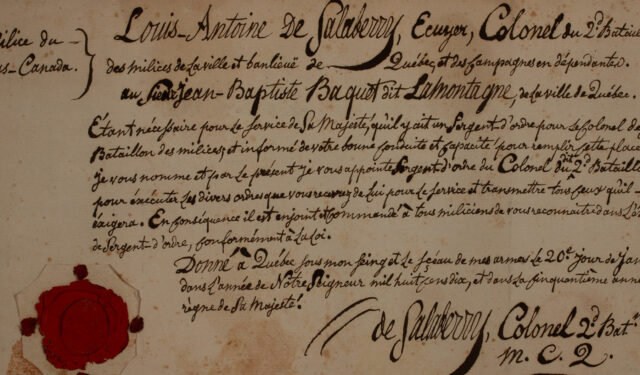 ilice du
s-Canada.
Louis-Antoine De Salaberry, Ecuyer, Colonel du 2d. Batail
des milices de La ville et banlieüe de Québec, et des Campagnes en dépendantes.
au Sieur Jean-Baptiste Baquet dit LaMontagne, de La ville de Québec.
Étant nécessaire pour Le Service de Sa Majesté, qu'il y ait un Sergent-d'ordre pour Le Colonel de
Bataillon des milices, et informé de votre bonne Conduite et Capacité pour remplir Cette place
je vous nomme et par Le présent je vous appointe Sergent-d'ordre du Colonel du 2d. Bataille
pour éxécuter Les divers ordres que vous recevrez de Lui pour Le Service et transmettre tous Ceux qu'il
éxigera. En Conséquence il est enjoint et Commandé à tous miliciens de vous reconnaitre dans L'é
de Sergent-d'ordre, Conformément à La Loi.
Donné à Québec Sous mon Seing et Le Sçeau de mes armes Le 20e. jour de Jan
dans L'année de Notre Seigneur mil huit Çens dix, et dans La Cinquantième anné
règne de Sa Majesté.
de Salaberry, Colonel 2d. Bat.n
M. C. Q.